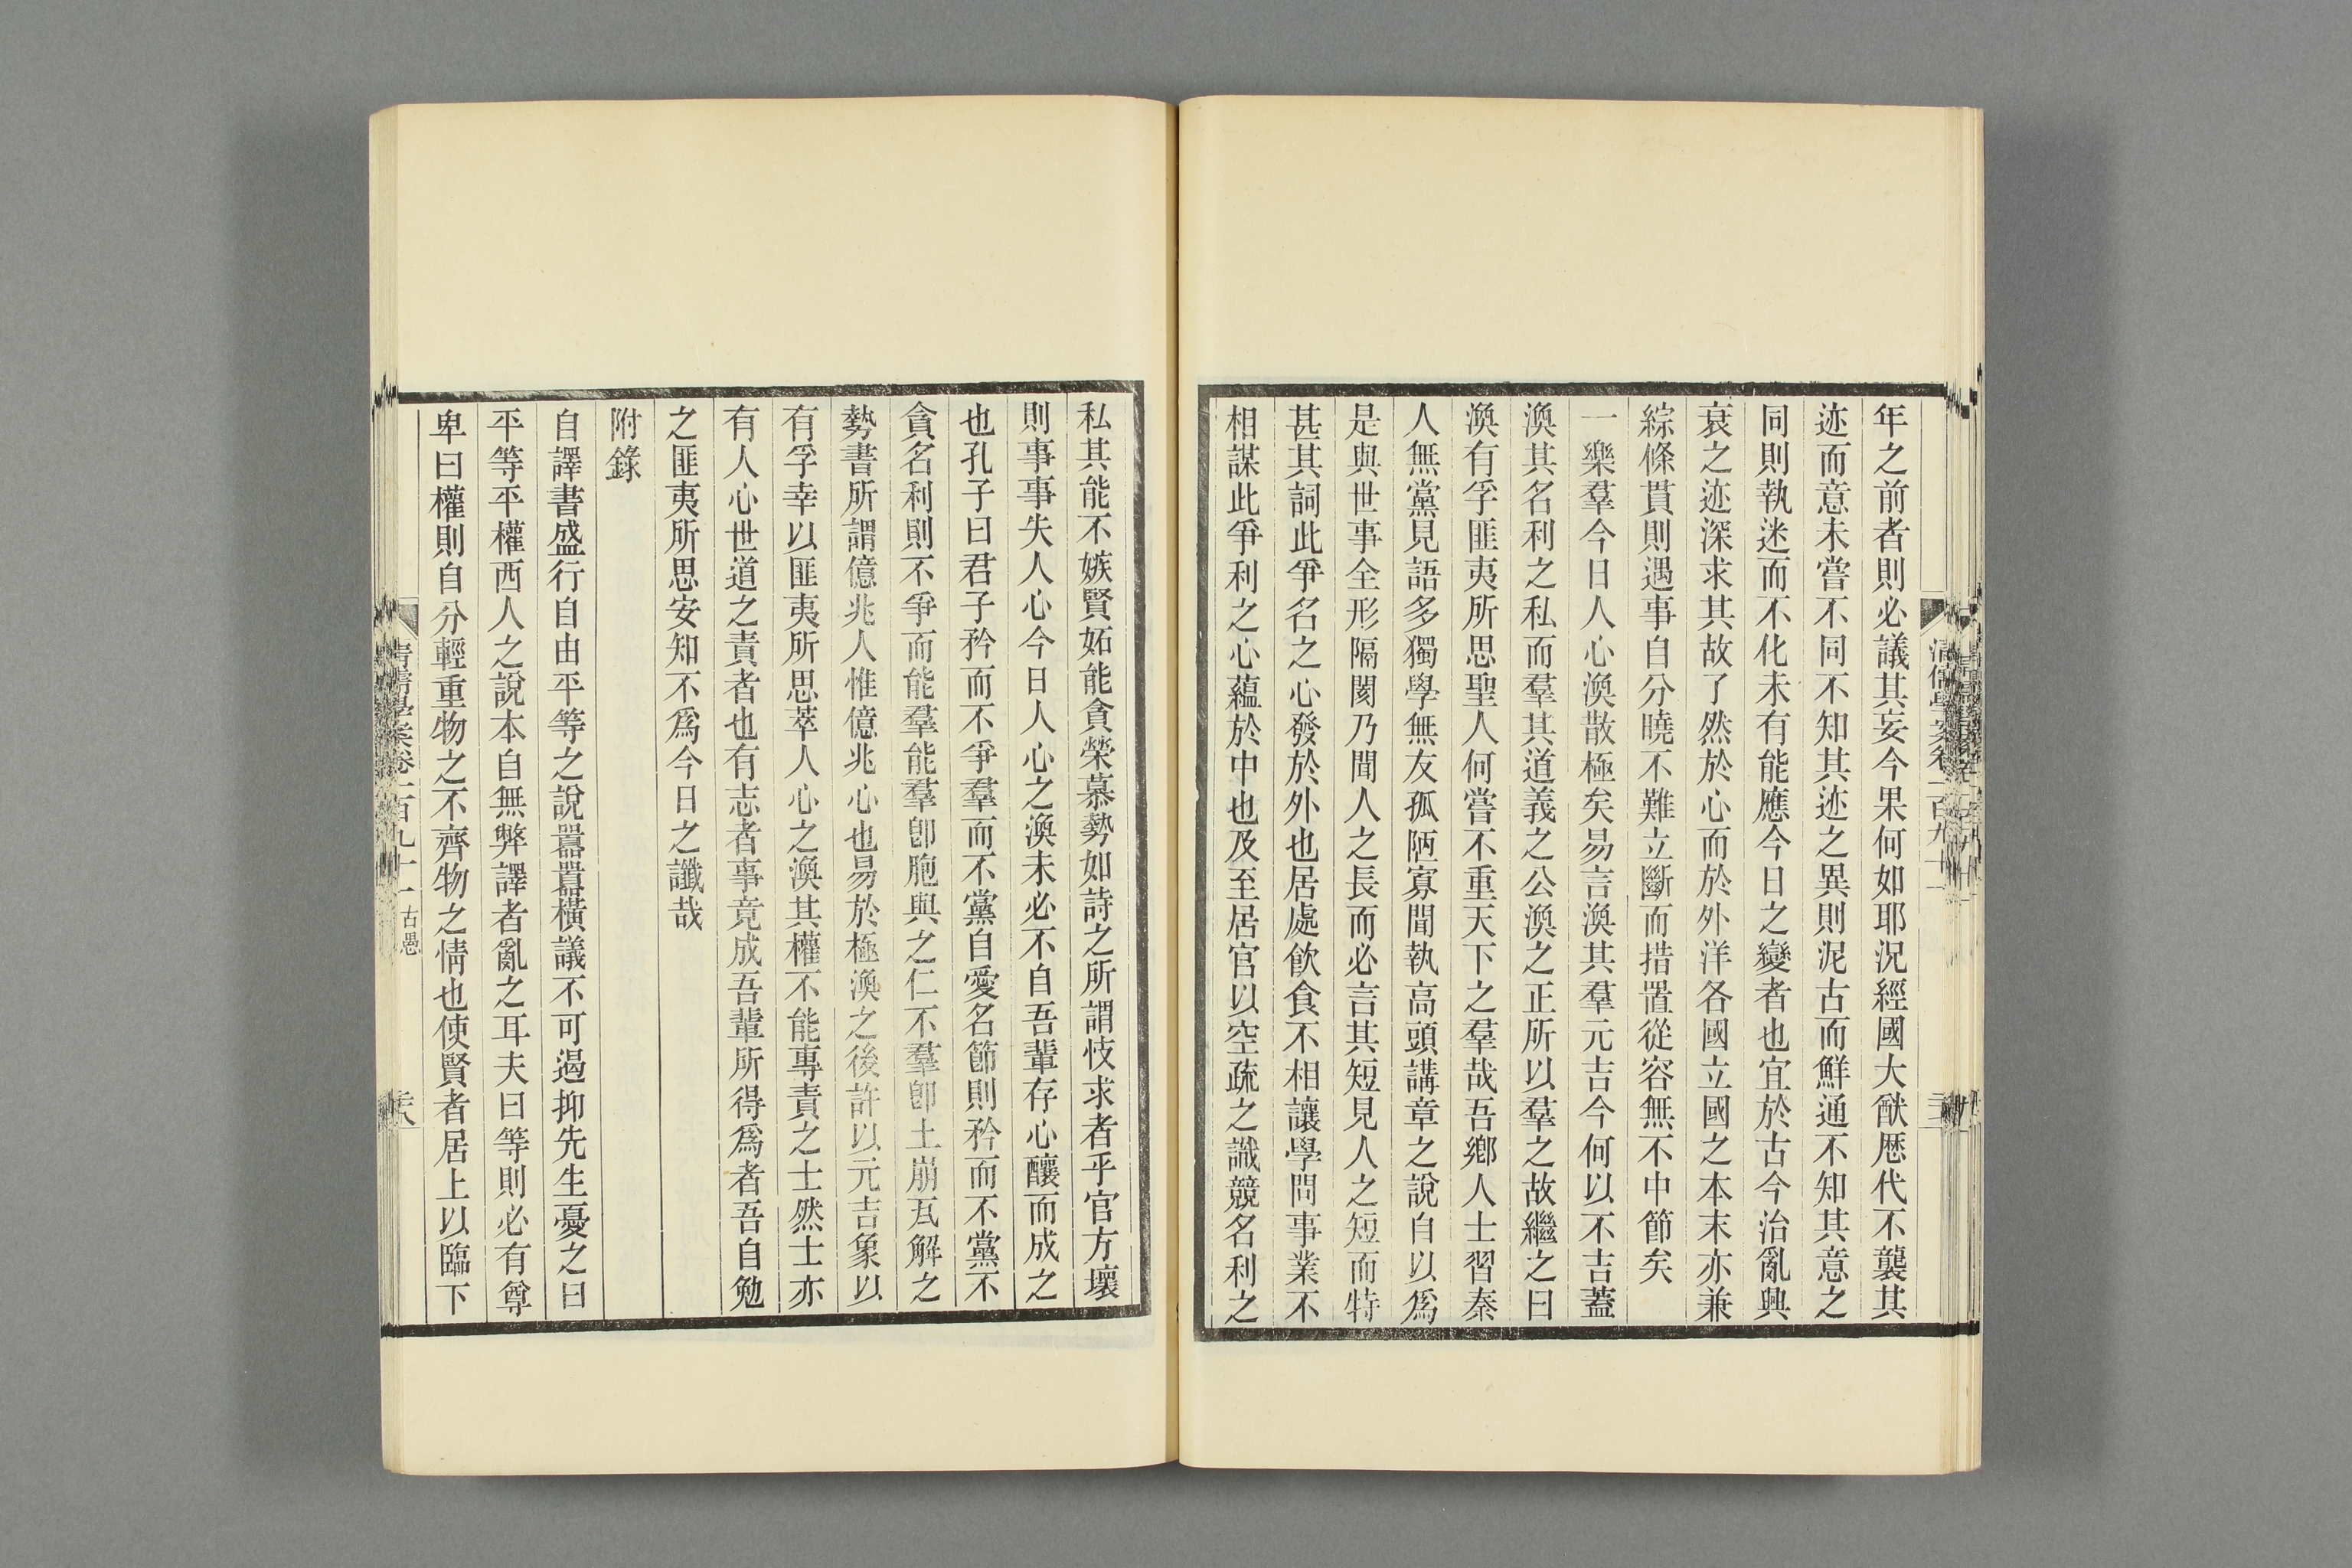 年之前者則必議其妄今果何如耶況經國大猷歷代不襲其
迹而意未嘗不同不知其迹之異則泥古而鮮通不知其意之
同則執迷而不化未有能應今日之變者也宜於古今治亂興
衰之迹深求其故了然於心而於外洋各國立國之本末亦兼
綜條貫則遇事自分曉不難立斷而措置從容無不中節矣
一樂羣今日人心渙散極矣易言渙其羣元吉今何以不吉蓋
渙其名利之私而羣其道義之公渙之正所以羣之故繼之曰
渙有孚匪夷所思聖人何嘗不重天下之羣哉吾鄉人士習秦
人無黨見語多獨學無友孤陋寡聞執高頭講章之說自以爲
是與世事全形隔閡乃聞人之長而必言其短見人之短而特
甚其詞此爭名之心發於外也居處飲食不相讓學問事業不
相謀此爭利之心蘊於中也及至居官以空疏之識競名利之
私其能不嫉賢妬能貪榮慕勢如詩之所謂忮求者乎官方壞
則事事失人心今日人心之渙未必不自吾輩存心釀而成之
也孔子曰君子矜而不爭羣而不黨自愛名節則矜而不黨不
貪名利則不爭而能羣能羣卽胞與之仁不羣卽土崩瓦解之
勢書所謂億兆人惟億兆心也易於極渙之後許以元吉象以
有孚幸以匪夷所思萃人心之渙其權不能專責之士然士亦
有人心世道之責者也有志者事竟成吾輩所得爲者吾自勉
之匪夷所思安知不爲今日之讖哉
附錄
自譯書盛行自由平等之說囂囂橫議不可遏抑先生憂之曰
平等平權西人之說本自無弊譯者亂之耳夫曰等則必有尊
卑曰權則自分輕重物之不齊物之情也使賢者居上以臨下
清儒學案卷一百九十一 古愚